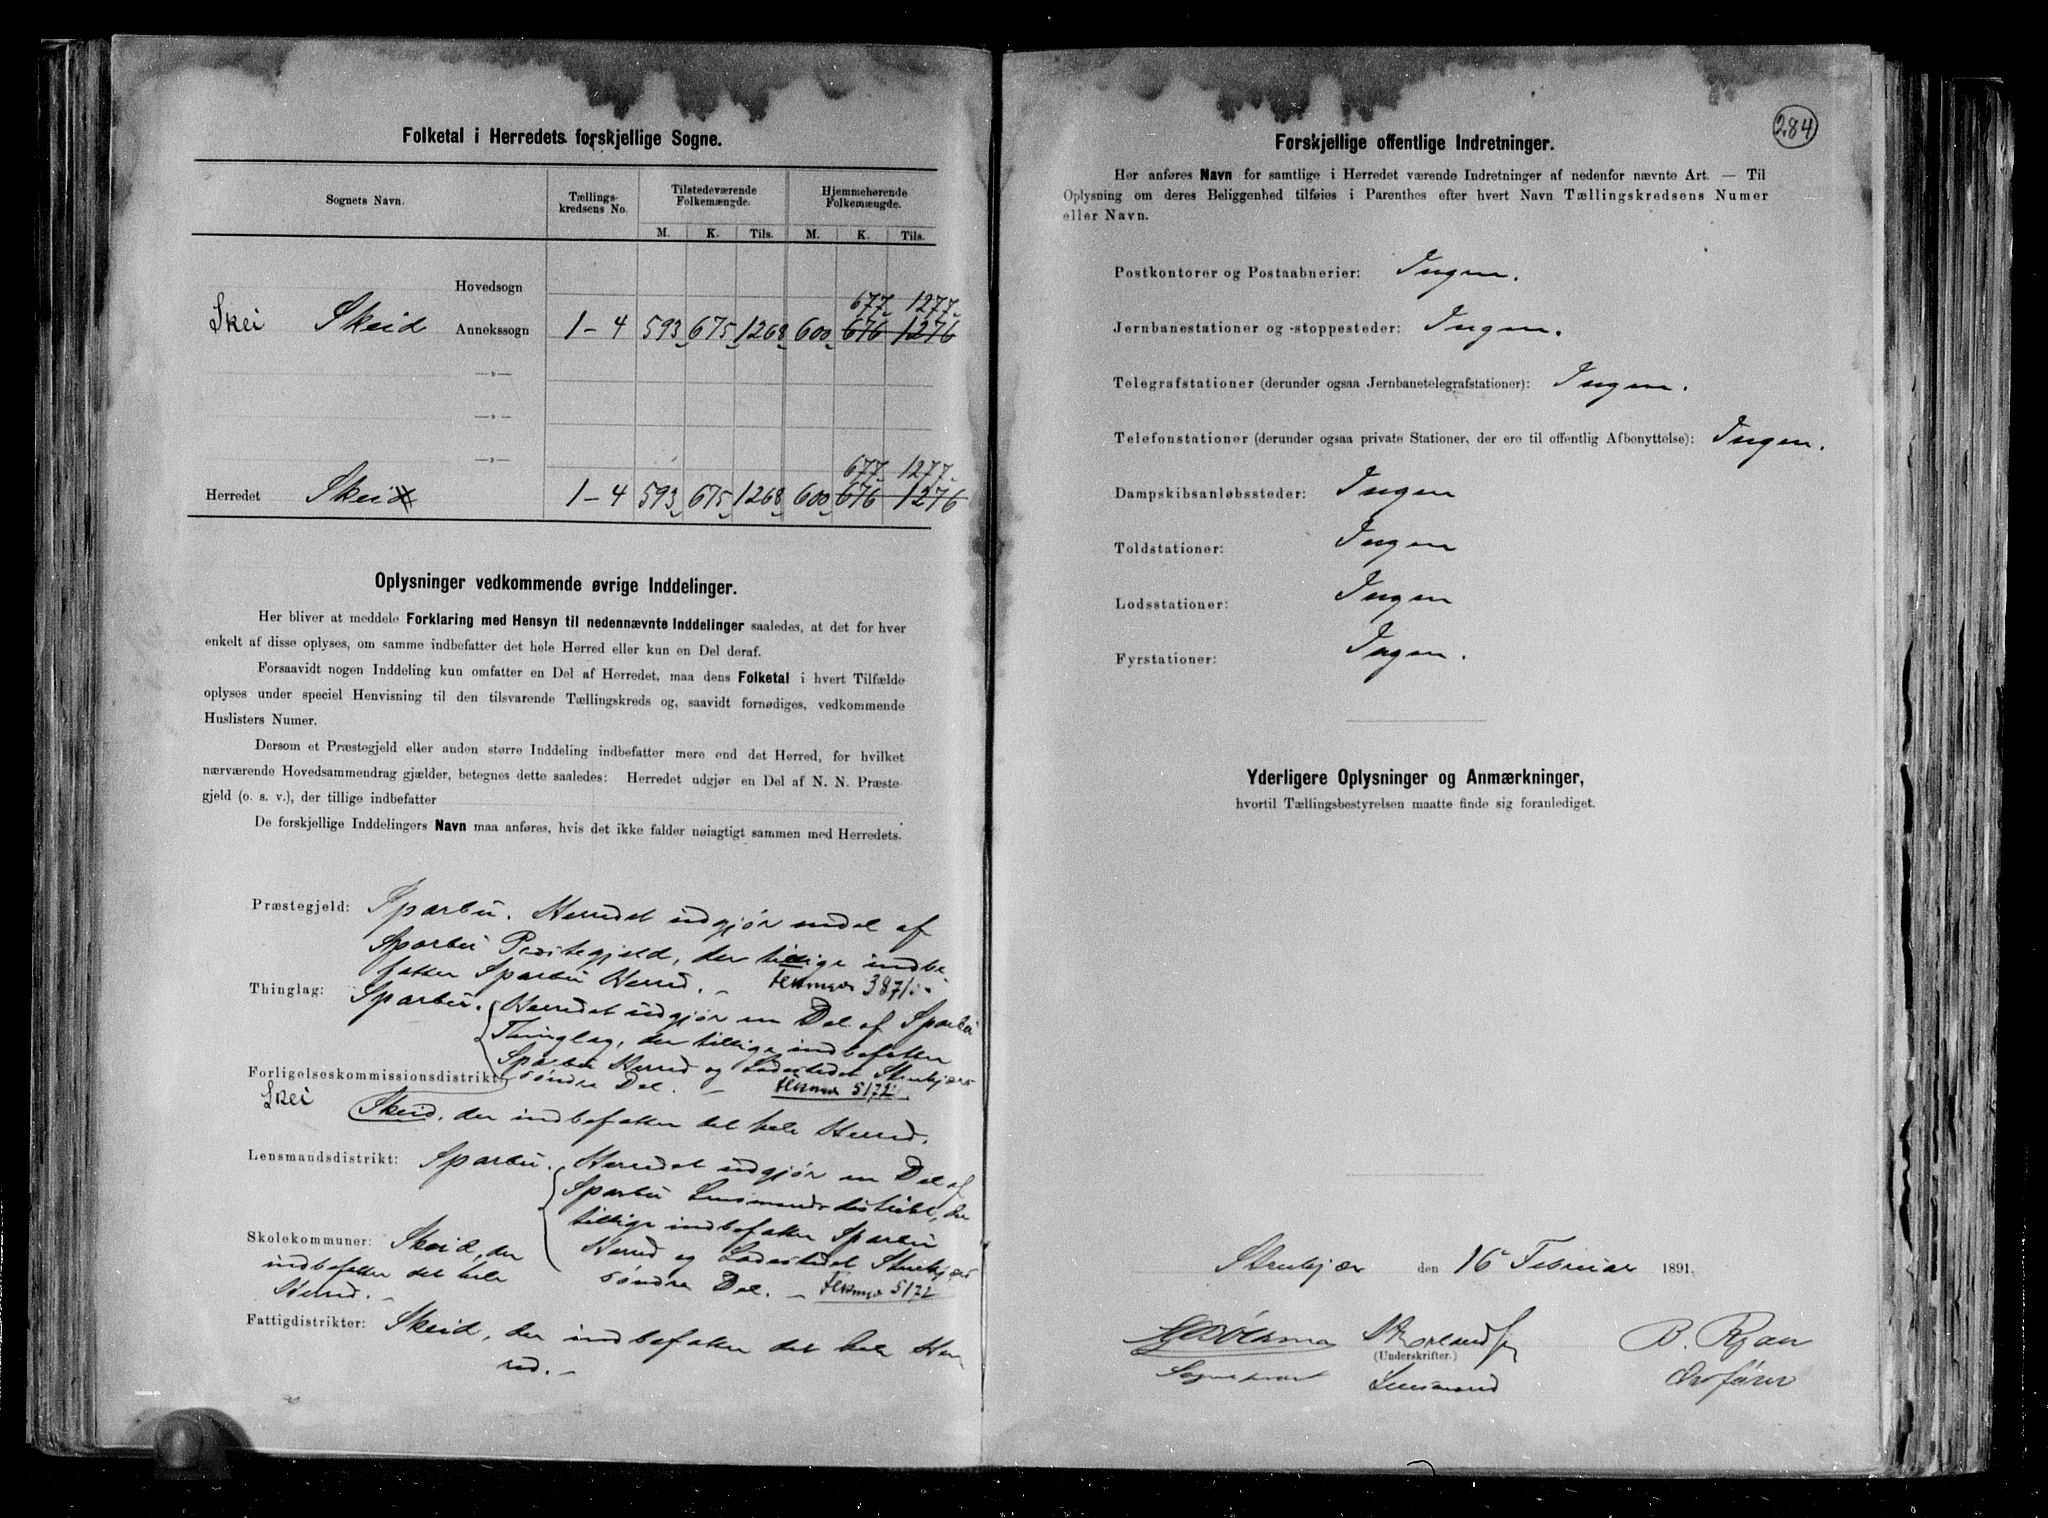 Folketal i Herredets forskjellige Sogne.
Sognets Navn.
Tællings-
kredsens No.
Tilstedeværende
Folkemængde.
Hjemmehørende
Folkemængde.
M. K. Tils. M. K. Tils.
Hovedsogn
677. 1277.
Skei Skeid Annekssogn 1-4 593 675 1268 600 676 1276
—»—
—»—
—»—
677. 1277.
Herredet Skeid 1-4 593 675 1268 600 676 1276
Oplysninger vedkommende øvrige Inddelinger.
Her bliver at meddele Forklaring med Hensyn til nedennævnte Inddelinger saaledes, at det for hver
enkelt af disse oplyses, om samme indbefatter det hele Herred eller kun en Del deraf.
Forsaavidt nogen Inddeling kun omfatter en Del af Herredet, maa dens Folketal i hvert Tilfælde
oplyses under speciel Henvisning til den tilsvarende Tællingskreds og, saavidt fornødiges, vedkommende
Huslisters Numer.
Dersom et Præstegjeld eller anden større Inddeling indbefatter mere end det Herred, for hvilket
nærværende Hovedsammendrag gjælder, betegnes dette saaledes: Herredet udgjør en Del af N. N. Præste-
gjeld (o. s. v.), der tillige indbefatter
De forskjellige Inddelingers Navn maa anføres, hvis det ikke falder nøiagtigt sammen med Herredets.
Præstegjeld: Sparbu. Herredet udgjør en del af
Sparbu Præstegjeld, der tillige indbe-
fatter Sparbu Herred. — 3871
Thinglag: Sparbu. Herredet udgjør en Del af Sparbu
Thinglag, der tillige indbefatter
Sparbu Herred og Ladestedet Stenkjærs
Forligelseskommissionsdistrikt søndre Del. — 5172
Skei Skeid, der indbefatter det hele Herred.
Lensmandsdistrikt: Sparbu. Herredet udgjør en Del af
Sparbu Lensmandsdistrikt, der
tillige indbefatter Sparbu
Herred og Ladestedet Stenkjærs
søndre Del. — 5172
Skolekommuner: Skeid, der
indbefatter det hele
Herred. —
Fattigdistrikter: Skeid, der indbefatter det hele Her-
red. —
284
Forskjellige offentlige Indretninger.
Her anføres Navn for samtlige i Herredet værende Indretninger af nedenfor nævnte Art. — Til
Oplysning om deres Beliggenhed tilføies i Parenthes efter hvert Navn Tællingskredsens Numer
eller Navn.
Postkontorer og Postaabnerier: Ingen.
Jernbanestationer og -stoppesteder: Ingen.
Telegrafstationer (derunder ogsaa Jernbanetelegrafstationer): Ingen.
Telefonstationer (derunder ogsaa private Stationer, der ere til offentlig Afbenyttelse): Ingen.
Dampskibsanløbssteder: Ingen
Toldstationer: Ingen
Lodsstationer: Ingen
Fyrstationer: Ingen.
Yderligere Oplysninger og Anmærkninger,
hvortil Tællingsbestyrelsen maatte finde sig foranlediget.
Stenkjær den 16 Februar 1891.
B. Ryan
(Underskrifter.)
Sogneprest Lensmand Ordfører